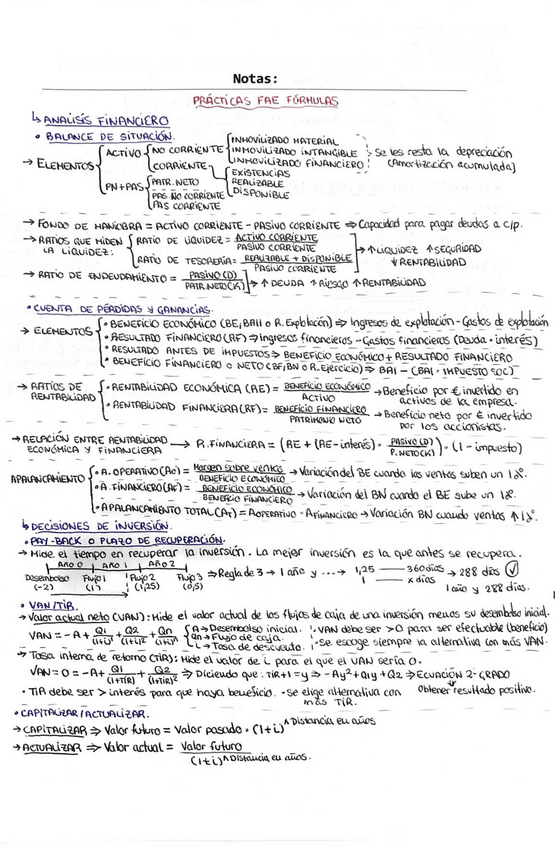 Notas:
PRÁCTICAS FAE FÓRMULAS
↳ ANÁLISIS FINANCIERO
• BALANCE DE SITUACIÓN.
→ ELEMENTOS
ACTIVO
NO CORRIENTE
INMOVILIZADO MATERIAL
INMOVILIZADO INTANGIBLE
INMOVILIZADO FINANCIERO
Se les resta la depreciación
(Amortización acumulada)
CORRIENTE
EXISTENCIAS
REALIZABLE
DISPONIBLE
PN+PAS
PATR. NETO
PAS NO CORRIENTE
PAS CORRIENTE
→ FONDO DE MANIOBRA = ACTIVO CORRIENTE - PASIVO CORRIENTE ⇒ Capacidad para pagar deudas a c/p.
→ RATIOS QUE MIDEN LA LIQUIDEZ:
RATIO DE LIQUIDEZ = ACTIVO CORRIENTE / PASIVO CORRIENTE
RATIO DE TESORERÍA = REALIZABLE + DISPONIBLE / PASIVO CORRIENTE
→ ↑LIQUIDEZ ↑SEGURIDAD
↓RENTABILIDAD
→ RATIO DE ENDEUDAMIENTO = PASIVO (D) / PATR.NETO(K) → ↑ DEUDA ↑ RIESGO ↑ RENTABILIDAD
• CUENTA DE PÉRDIDAS Y GANANCIAS.
→ ELEMENTOS
• BENEFICIO ECONÓMICO (BE, BAII o R. Explotación) ⇒ Ingresos de explotación - Gastos de explotación
• RESULTADO FINANCIERO (RF) ⇒ Ingresos financieros - Gastos financieros (Deuda · interés)
• RESULTADO ANTES DE IMPUESTOS ⇒ BENEFICIO ECONÓMICO + RESULTADO FINANCIERO
• BENEFICIO FINANCIERO O NETO (BF, BN o R. Ejercicio) ⇒ BAI - (BAI · IMPUESTO SOC)
→ RATIOS DE RENTABILIDAD
• RENTABILIDAD ECONÓMICA (RE) = BENEFICIO ECONÓMICO / ACTIVO → Beneficio por € invertido en activos de la empresa.
• RENTABILIDAD FINANCIERA (RF) = BENEFICIO FINANCIERO / PATRIMONIO NETO → Beneficio neto por € invertido por los accionistas.
→ RELACIÓN ENTRE RENTABILIDAD ECONÓMICA Y FINANCIERA → R. FINANCIERA = (RE + (RE - interés) · PASIVO (D) / P.NETO(K)) · (1 - impuesto)
APALANCAMIENTO
• A. OPERATIVO (Ao) = Margen sobre ventas / BENEFICIO ECONÓMICO → Variación del BE cuando las ventas suben un 1%.
• A. FINANCIERO (Af) = BENEFICIO ECONÓMICO / BENEFICIO FINANCIERO → Variación del BN cuando el BE sube un 1%.
• APALANCAMIENTO TOTAL (AT) = AOPERATIVO · AFINANCIERO → Variación BN cuando ventas ↑ 1%.
↳ DECISIONES DE INVERSIÓN.
• PAY-BACK O PLAZO DE RECUPERACIÓN.
→ Mide el tiempo en recuperar la inversión. La mejor inversión es la que antes se recupera.
AÑO 0 AÑO 1 AÑO 2
Desembolso (-2) Flujo 1 (1) Flujo 2 (1,25) Flujo 3 (0,5)
⇒ Regla de 3 → 1 año y ... → 1,25 — 360 días
1 — x días
→ 288 días
1 año y 288 días.
• VAN/TIR.
→ Valor actual neto (VAN): Mide el valor actual de los flujos de caja de una inversión menos su desembolso inicial.
VAN = -A + Q1/(1+i) + Q2/(1+i)² + Qn/(1+i)ⁿ
A → Desembolso inicial.
Qn → Flujo de caja.
i → Tasa de descuento.
• VAN debe ser >0 para ser efectuable (beneficio)
• Se escoge siempre la alternativa con más VAN.
→ Tasa interna de retorno (TIR): Mide el valor de i para el que el VAN sería 0.
VAN = 0 = -A + Q1/(1+TIR) + Q2/(1+TIR)² ⇒ Diciendo que: TIR+1 = y ⇒ -Ay² + Q1y + Q2 ⇒ ECUACIÓN 2º GRADO
Obtener resultado positivo.
• TIR debe ser > interés para que haya beneficio. • Se elige alternativa con más TIR.
• CAPITALIZAR/ACTUALIZAR.
→ CAPITALIZAR ⇒ Valor futuro = Valor pasado · (1+i)^Distancia en años
→ ACTUALIZAR ⇒ Valor actual = Valor futuro / (1+i)^Distancia en años.